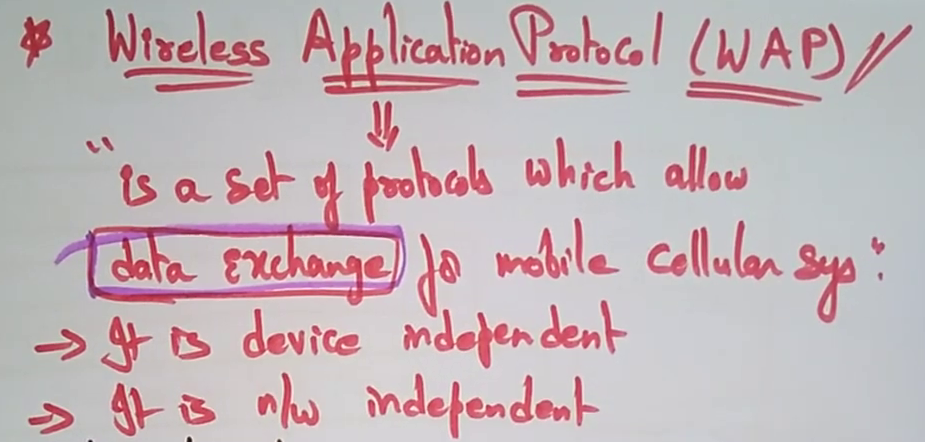 * Wireless Application Protocol (WAP) //
⇓
" is a set of protocols which allow
data exchange for mobile cellular sys".
→ It is device independent
→ It is n/w independent